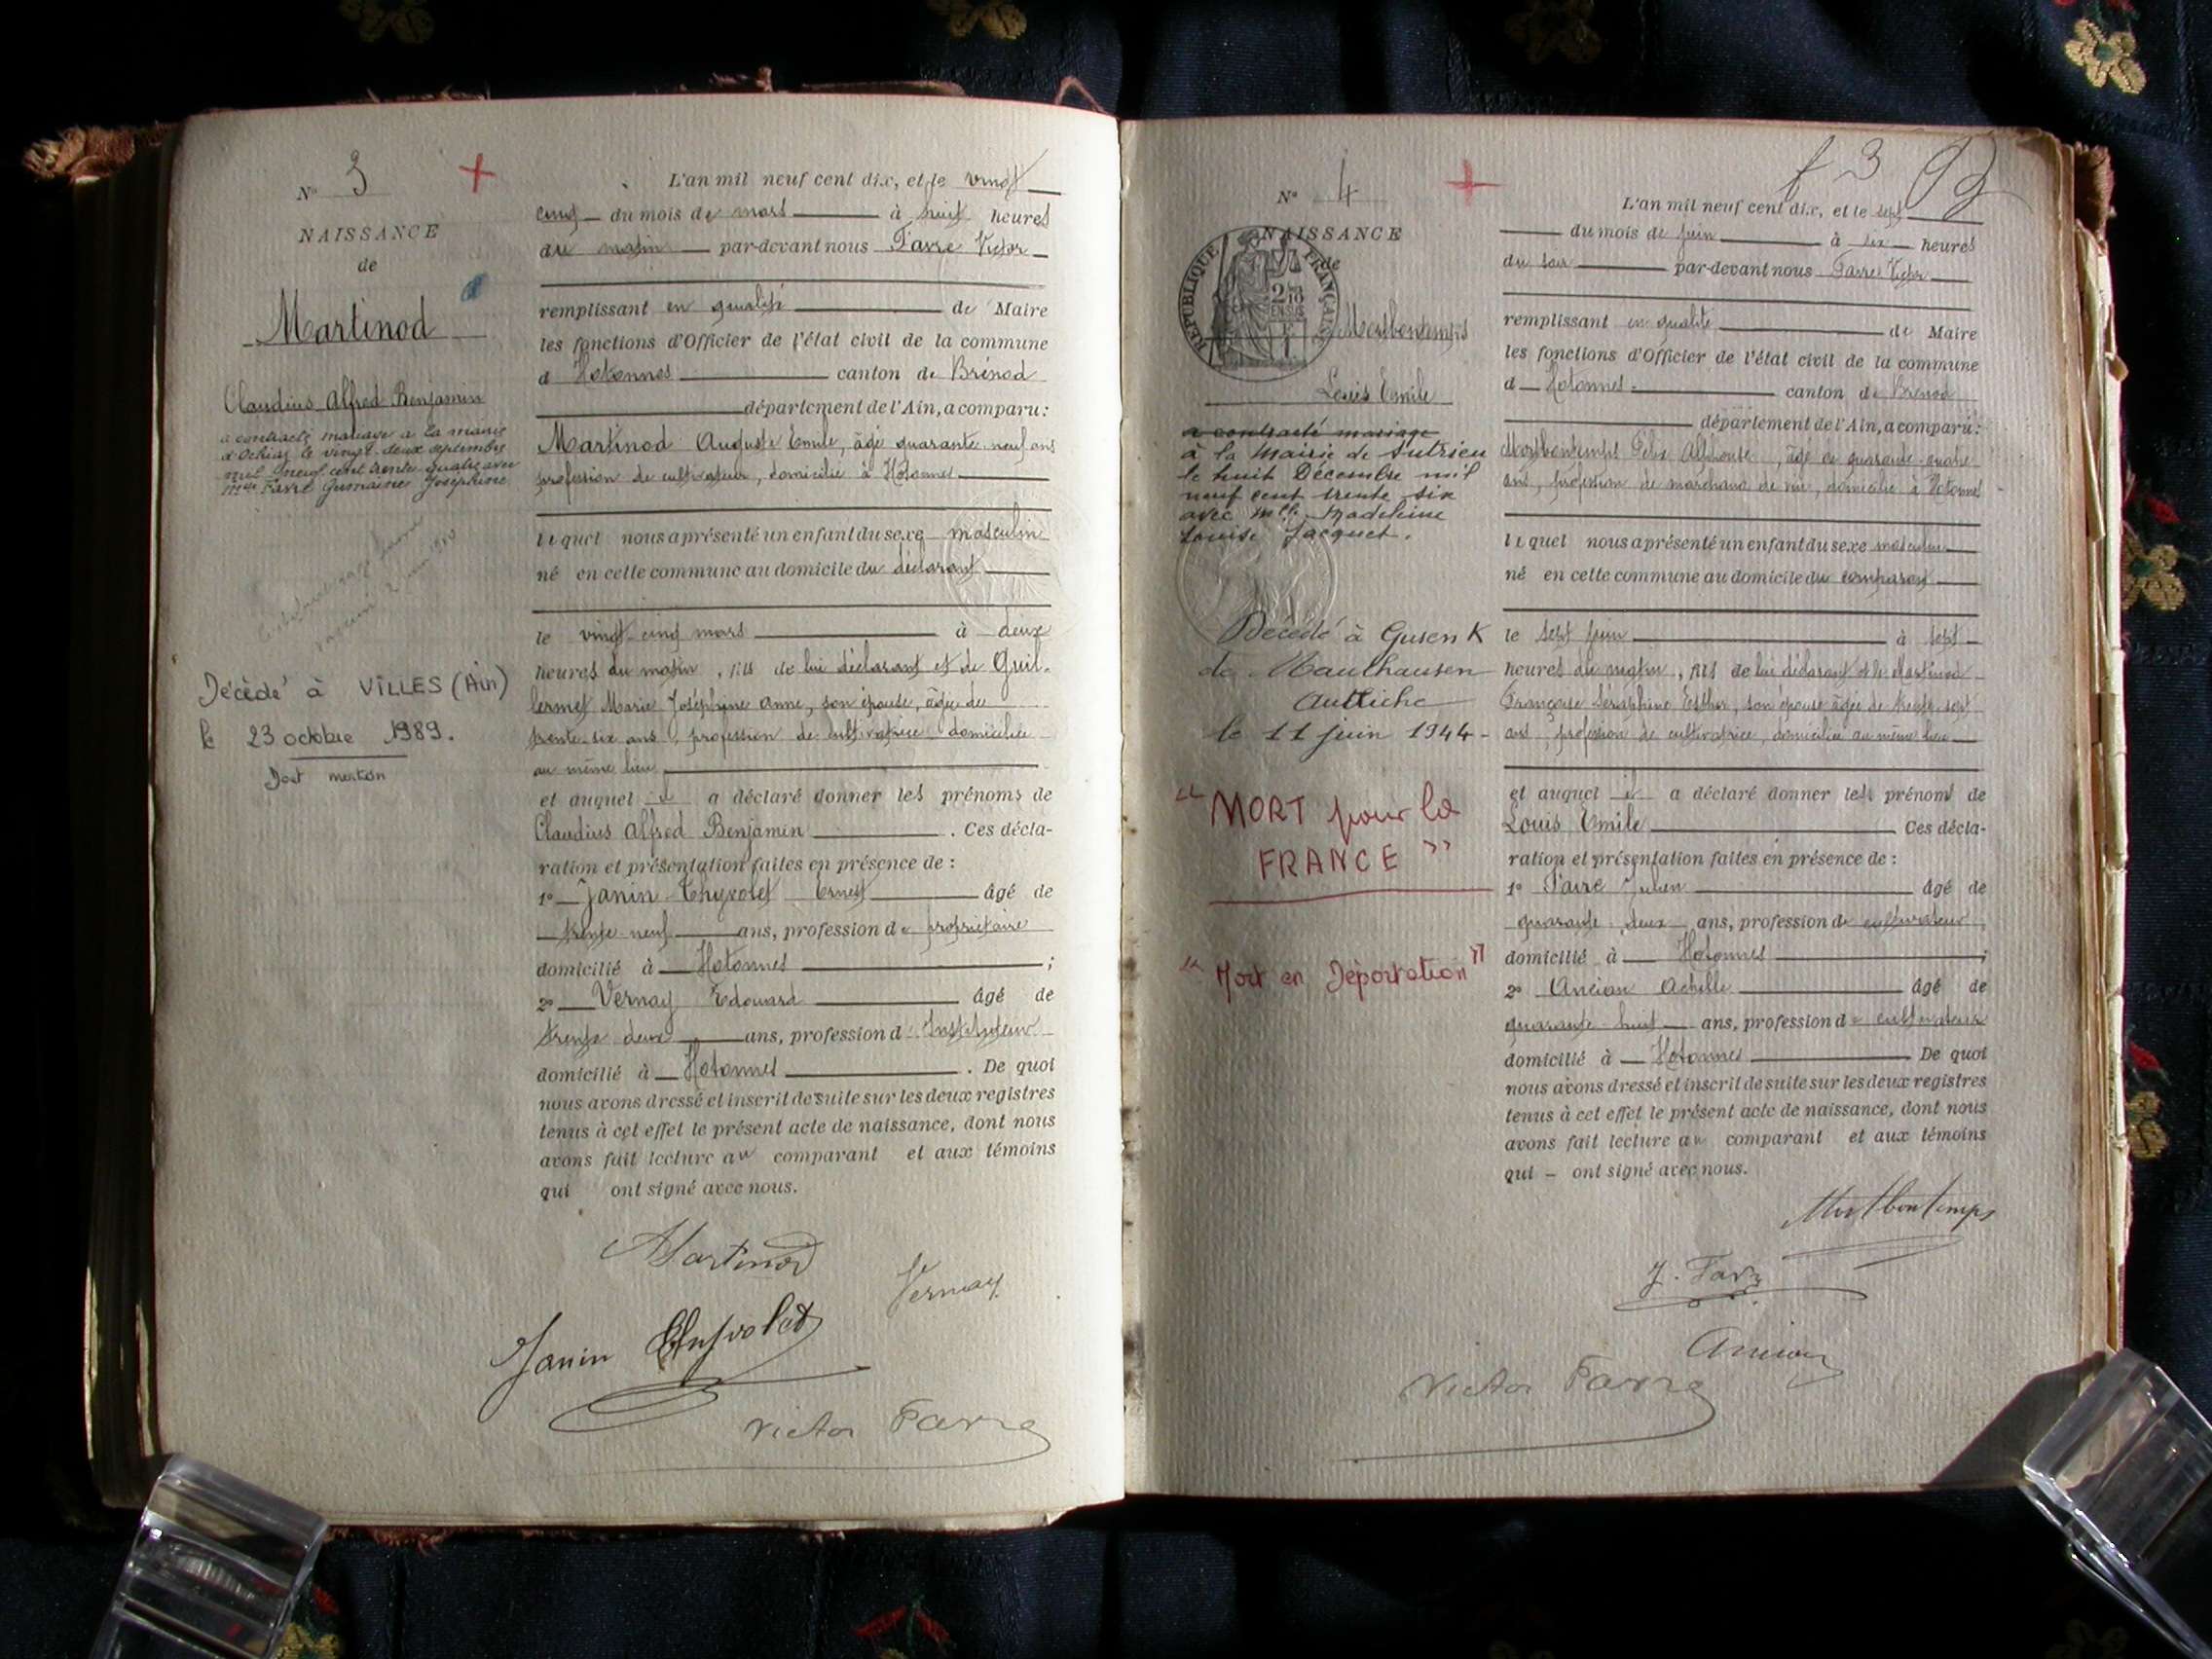 N° 3
NAISSANCE
de
Martinod
Claudius Alfred Benjamin
a contracté mariage à la mairie
d'Ochiaz le vingt-deux septembre
mil neuf cent trente quatre avec
Mlle Favre Germaine Joséphine
Décédé à VILLES (Ain)
le 23 octobre 1989.
Dont mention
L'an mil neuf cent dix, et le vingt
cinq du mois de mars à huit heures
du matin par-devant nous Favre Victor
remplissant en qualité de Maire
les fonctions d'Officier de l'état civil de la commune
d Hotonnes canton de Brénod
département de l'Ain, a comparu:
Martinod Auguste Emile, âgé quarante-neuf ans
profession de cultivateur, domicilié à Hotonnes
lequel nous a présenté un enfant du sexe masculin
né en cette commune au domicile du déclarant
le vingt-cinq mars à deux
heures du matin, fils de lui déclarant et de Guil-
lermet Marie Joséphine Anne, son épouse, âgée de
trente-six ans, profession de cultivatrice domiciliée
au même lieu
et auquel il a déclaré donner les prénoms de
Claudius Alfred Benjamin . Ces décla-
ration et présentation faites en présence de :
1° Janin Thyvolet Ernest âgé de
trente-neuf ans, profession de propriétaire
domicilié à Hotonnes ;
2° Vernay Edouard âgé de
trente deux ans, profession d'Instituteur
domicilié à Hotonnes . De quoi
nous avons dressé et inscrit de suite sur les deux registres
tenus à cet effet le présent acte de naissance, dont nous
avons fait lecture au comparant et aux témoins
qui ont signé avec nous.
Martinod
Vernay
Janin Thyvolet
Victor Favre
f 3
N° 4
NAISSANCE
de
RÉPUBLIQUE FRANÇAISE
Mortbontemps
Louis Emile
a contracté mariage
à la Mairie de Sutrieu
le huit Décembre mil
neuf cent trente six
avec Mlle Madeleine
Louise Jacquet.
Décédé à Gusen K
de Mauthausen
Autriche
le 11 juin 1944-
"MORT pour la
FRANCE"
"Mort en Déportation"
L'an mil neuf cent dix, et le sept
du mois de juin à six heures
du soir par-devant nous Favre Victor
remplissant en qualité de Maire
les fonctions d'Officier de l'état civil de la commune
d Hotonnes canton de Brénod
département de l'Ain, a comparu:
Mortbontemps Félix Alphonse, âgé de quarante-quatre
ans, profession de marchand de vin, domicilié à Hotonnes
lequel nous a présenté un enfant du sexe masculin
né en cette commune au domicile du comparant
le sept juin à sept
heures du matin, fils de lui déclarant et de Martinod
Françoise Séraphine Esther, son épouse âgée de trente-sept
ans, profession de cultivatrice, domiciliée au même lieu
et auquel il a déclaré donner les prénoms de
Louis Emile Ces décla-
ration et présentation faites en présence de :
1° Favre Julien âgé de
quarante deux ans, profession de cultivateur
domicilié à Hotonnes ;
2° Ancian Achille âgé de
quarante huit ans, profession de cultivateur
domicilié à Hotonnes De quoi
nous avons dressé et inscrit de suite sur les deux registres
tenus à cet effet le présent acte de naissance, dont nous
avons fait lecture au comparant et aux témoins
qui - ont signé avec nous.
Mortbontemps
J. Favre
Ancian
Victor Favre